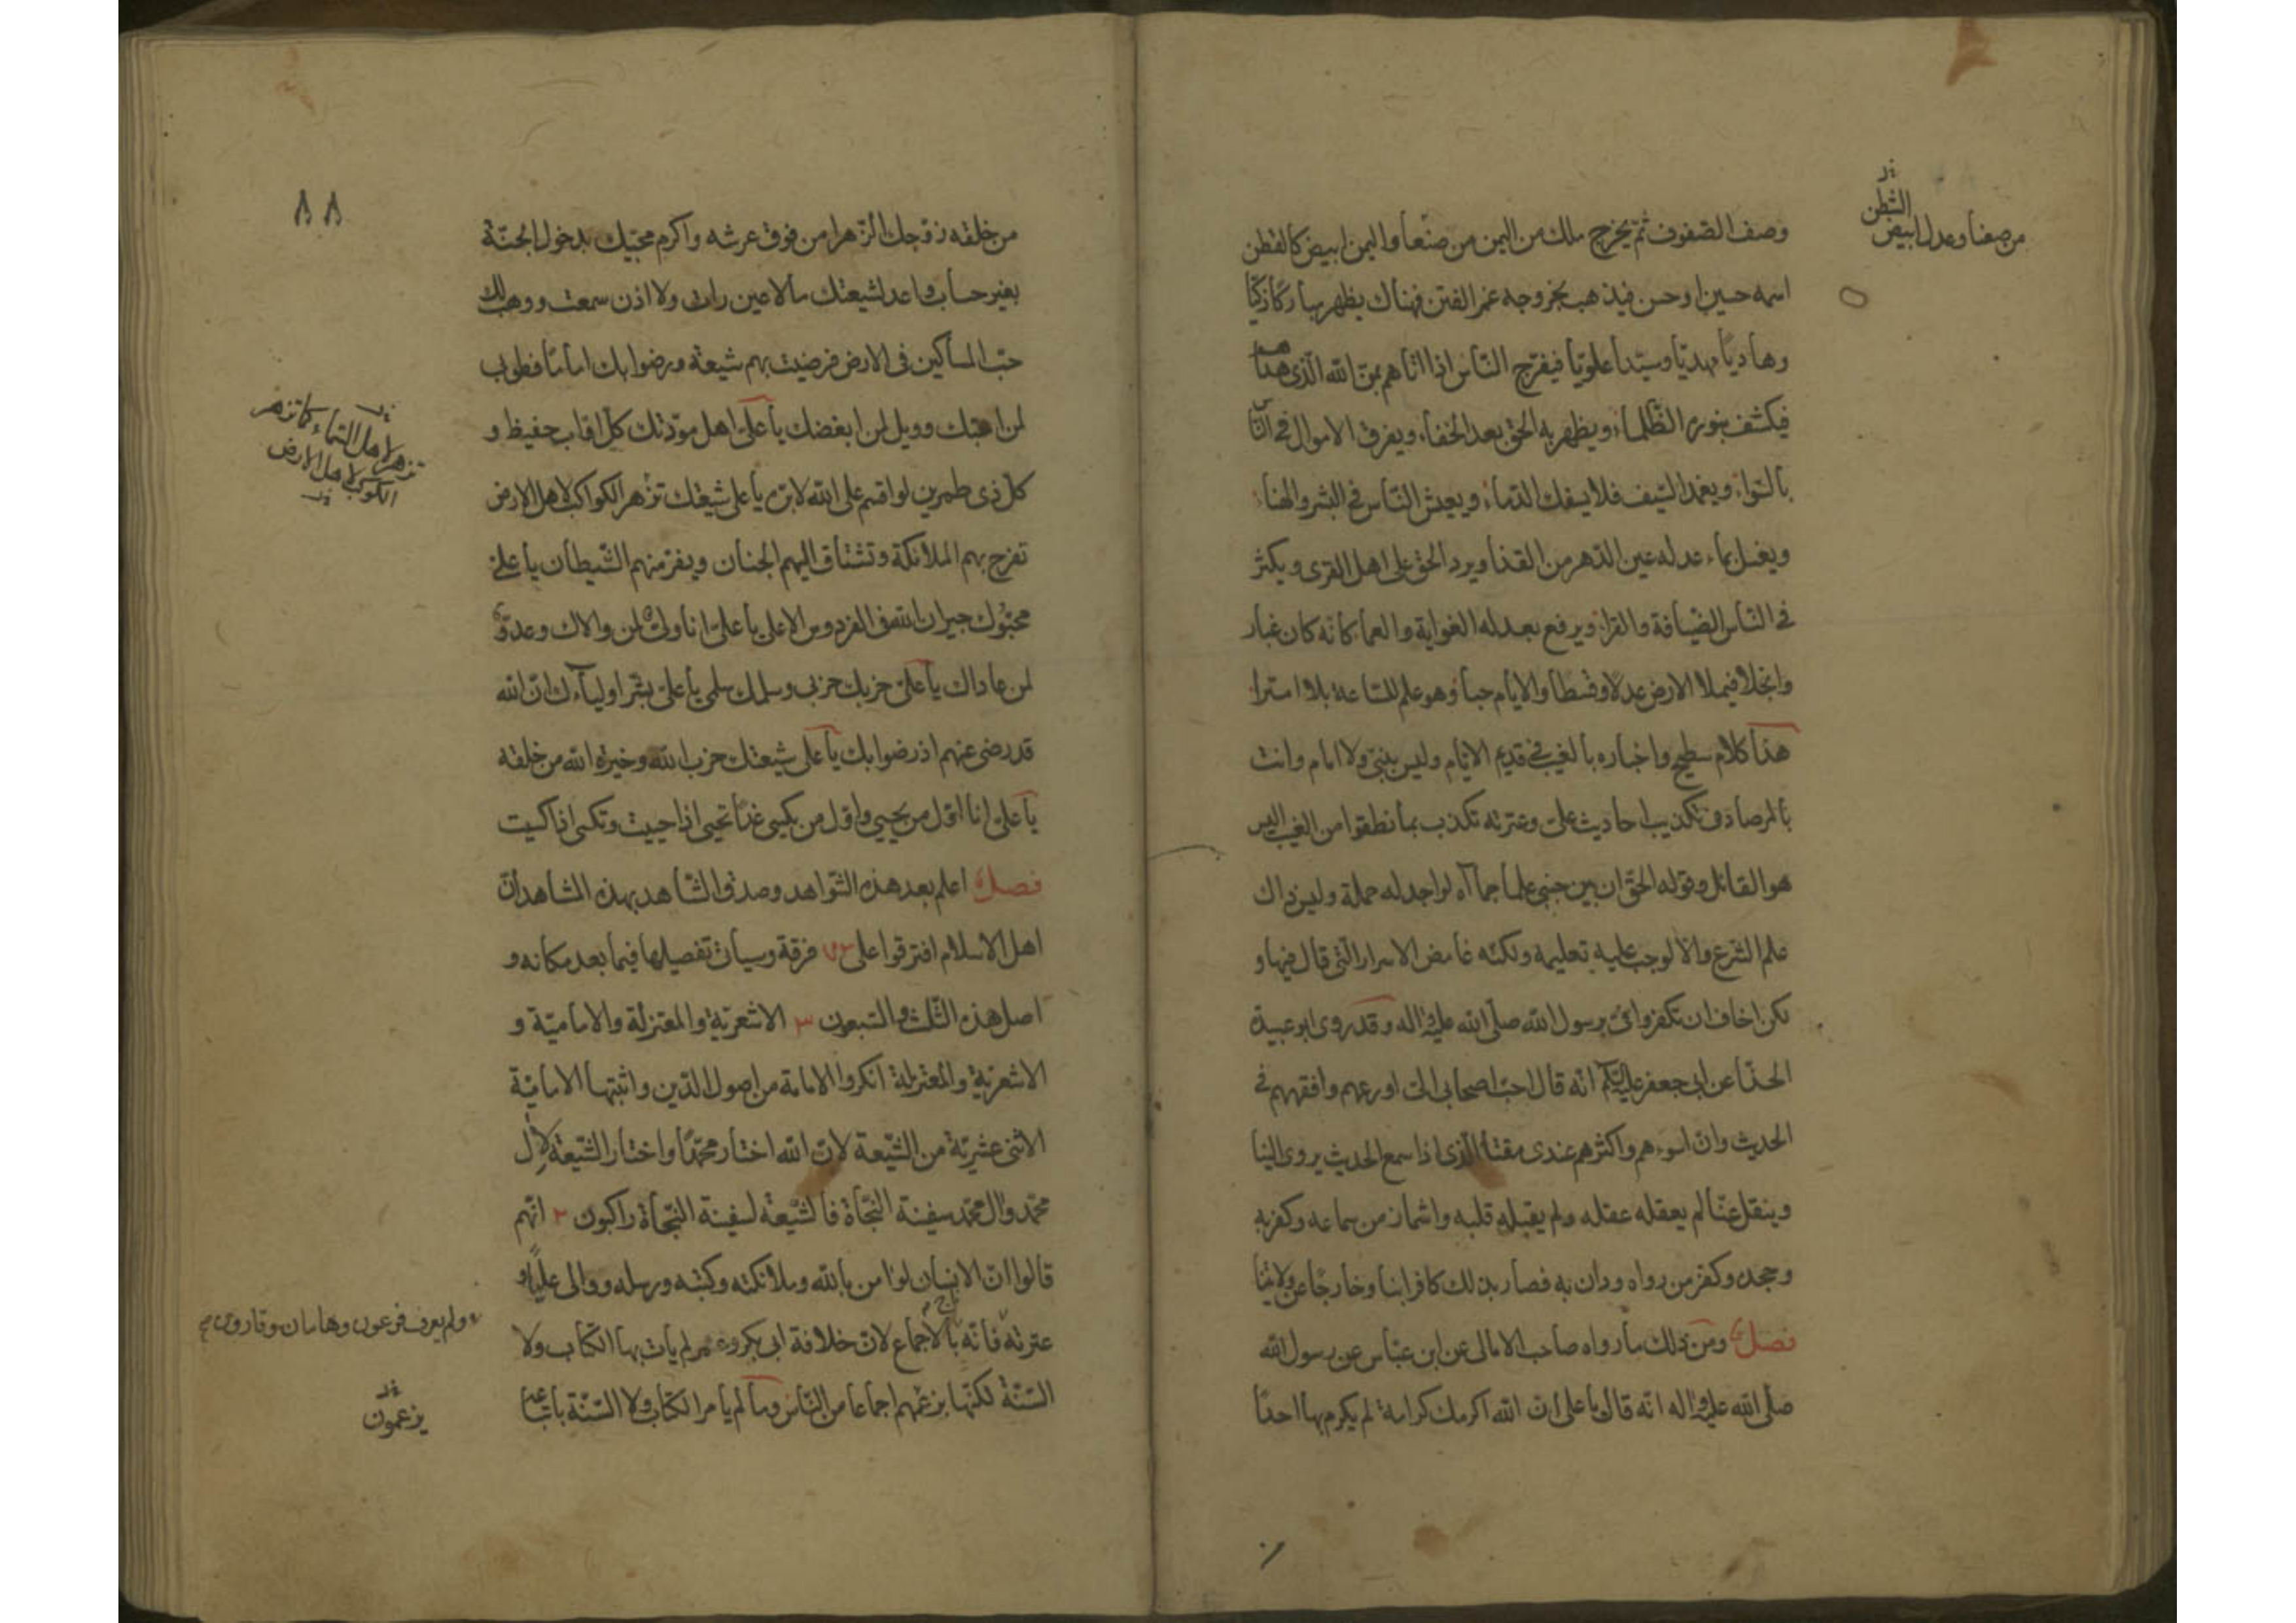 وصف الصفوف ثم يخرج ملك من اليمن من صنعا واليمن ابيض كالقطن
اسمه حسين او حسن فيذهب بخروجه غمر الفتن فهناك يظهر مباركا زكيا
وهاديا مهديا وسيدا علويا فيفرج الناس اذا اتاهم بمن الله الذي هداهم
فيكشف بنوره الظلماء ويظهر به الحق بعد الخفاء ويفرق الاموال في الناس
بالسواء ويغمد السيف فلا يسفك الدماء ويعيش الناس في البشر والهناء
ويغسل بماء عدله عين الدهر من القذا ويرد الحق على اهل القرى ويكثر
في الناس الضيافة والقرا ويرفع بعدله الغواية والعما كانه كان غبار
وانجلا فيملا الارض عدلا وقسطا والايام حبا وهو علم للساعة بلا امترا
هذا كلام سطيح واخباره بالغيب في قديم الايام وليس بنبي ولا امام وانت
بالمرصاد في تكذيب احاديث علي وعترته تكذب بما نطقوا من الغيب اليس
هو القائل وقوله الحق ان بين جنبي علما جما آه لو اجد له حملة وليس ذاك
علم الشرع والا لوجب عليه تعليمه ولكنه غامض الاسرار التي قال فيها و
لكن اخاف ان تكفروا في برسول الله صلى الله عليه واله وقد روى ابو عبيدة
الحذا عن ابي جعفر عليه السلم انه قال احب اصحابي الي اورعهم وافقههم في
الحديث وان اسوءهم واكثرهم عندي مقتا الذي اذا سمع الحديث يروى الينا
وينقل عنا لم يعقله عقله ولم يقبله قلبه واشماز من سماعه وكفر به
وجحده وكفر من رواه ودان به فصار بذلك كافرا بنا وخارجا عن ولايتنا
فصل ومن ذلك ما رواه صاحب الامالى عن ابن عباس عن رسول الله
صلى الله عليه واله انه قال يا علي ان الله اكرمك كرامة لم يكرم بها احدا
من صنعا وعدل ابيض
كالشطن
٨٨
من خلقه زوجك الزهرا من فوق عرشه واكرم محبيك بدخول الجنة
بغير حساب واعد لشيعتك ما لا عين رات ولا اذن سمعت ووهب لك
حب المساكين في الارض فرضيت بهم شيعة ورضوا بك اماما فطوبى
لمن احبك وويل لمن ابغضك يا علي اهل مودتك كل اواب حفيظ و
كل ذي طمرين لو اقسم على الله لابره يا علي شيعتك تزهر الكواكب لاهل الارض
تفرح بهم الملائكة وتشتاق اليهم الجنان ويفر منهم الشيطان يا علي
محبوك جيران الله في الفردوس الاعلى يا علي انا ولي لمن والاك وعدو
لمن عاداك يا علي حربك حربي وسلمك سلمي يا علي بشر اولياءك ان الله
قد رضي عنهم اذ رضوا بك يا علي شيعتك حزب الله وخيرة الله من خلقه
يا علي انا اول من يحيى واول من يكسى غدا تحيى اذا حييت وتكسى اذا كسيت
فصل اعلم بعد هذه الشواهد وصدق الشاهد بهذه المشاهد ان
اهل الاسلام افترقوا على ٧٣ فرقة وسيات تفصيلها فيما بعد مكانه و
اصل هذه الثلث والسبعون ٣ الاشعرية والمعتزلة والامامية و
الاشعرية والمعتزلة انكروا الامامة من اصول الدين واثبتها الامامية
الاثنى عشرية من الشيعة لان الله اختار محمدا واختار الشيعة لال
محمد وال محمد سفينة النجاة فالشيعة لسفينة النجاة راكبون ٢ انهم
قالوا ان الانسان لو امن بالله وملائكته وكتبه ورسله ووالى عليا و
عترته فانه ناج بالاجماع لان خلافة ابي بكر وعمر لم يات بها الكتاب ولا
السنة لكنها بزعمهم اجماعا من الناس وما لم يامر الكتاب ولا السنة باتباعه
تزهر لاهل السماء كما تزهر
الكواكب لاهل الارض
ولم يعرف فرعون وهامان وقارون صح
يزعمون